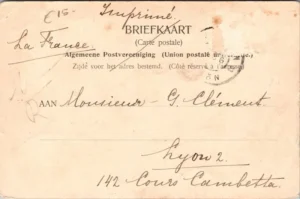 €15-
Imprimé
La France.
BRIEFKAART
(Carte postale)
Algemeene Postvereeniging (Union postale
Zijde voor het adres bestemd. (Côté réservé
AAN Monsieur G. Clément.
Lyon 2.
142 Cours Gambetta.